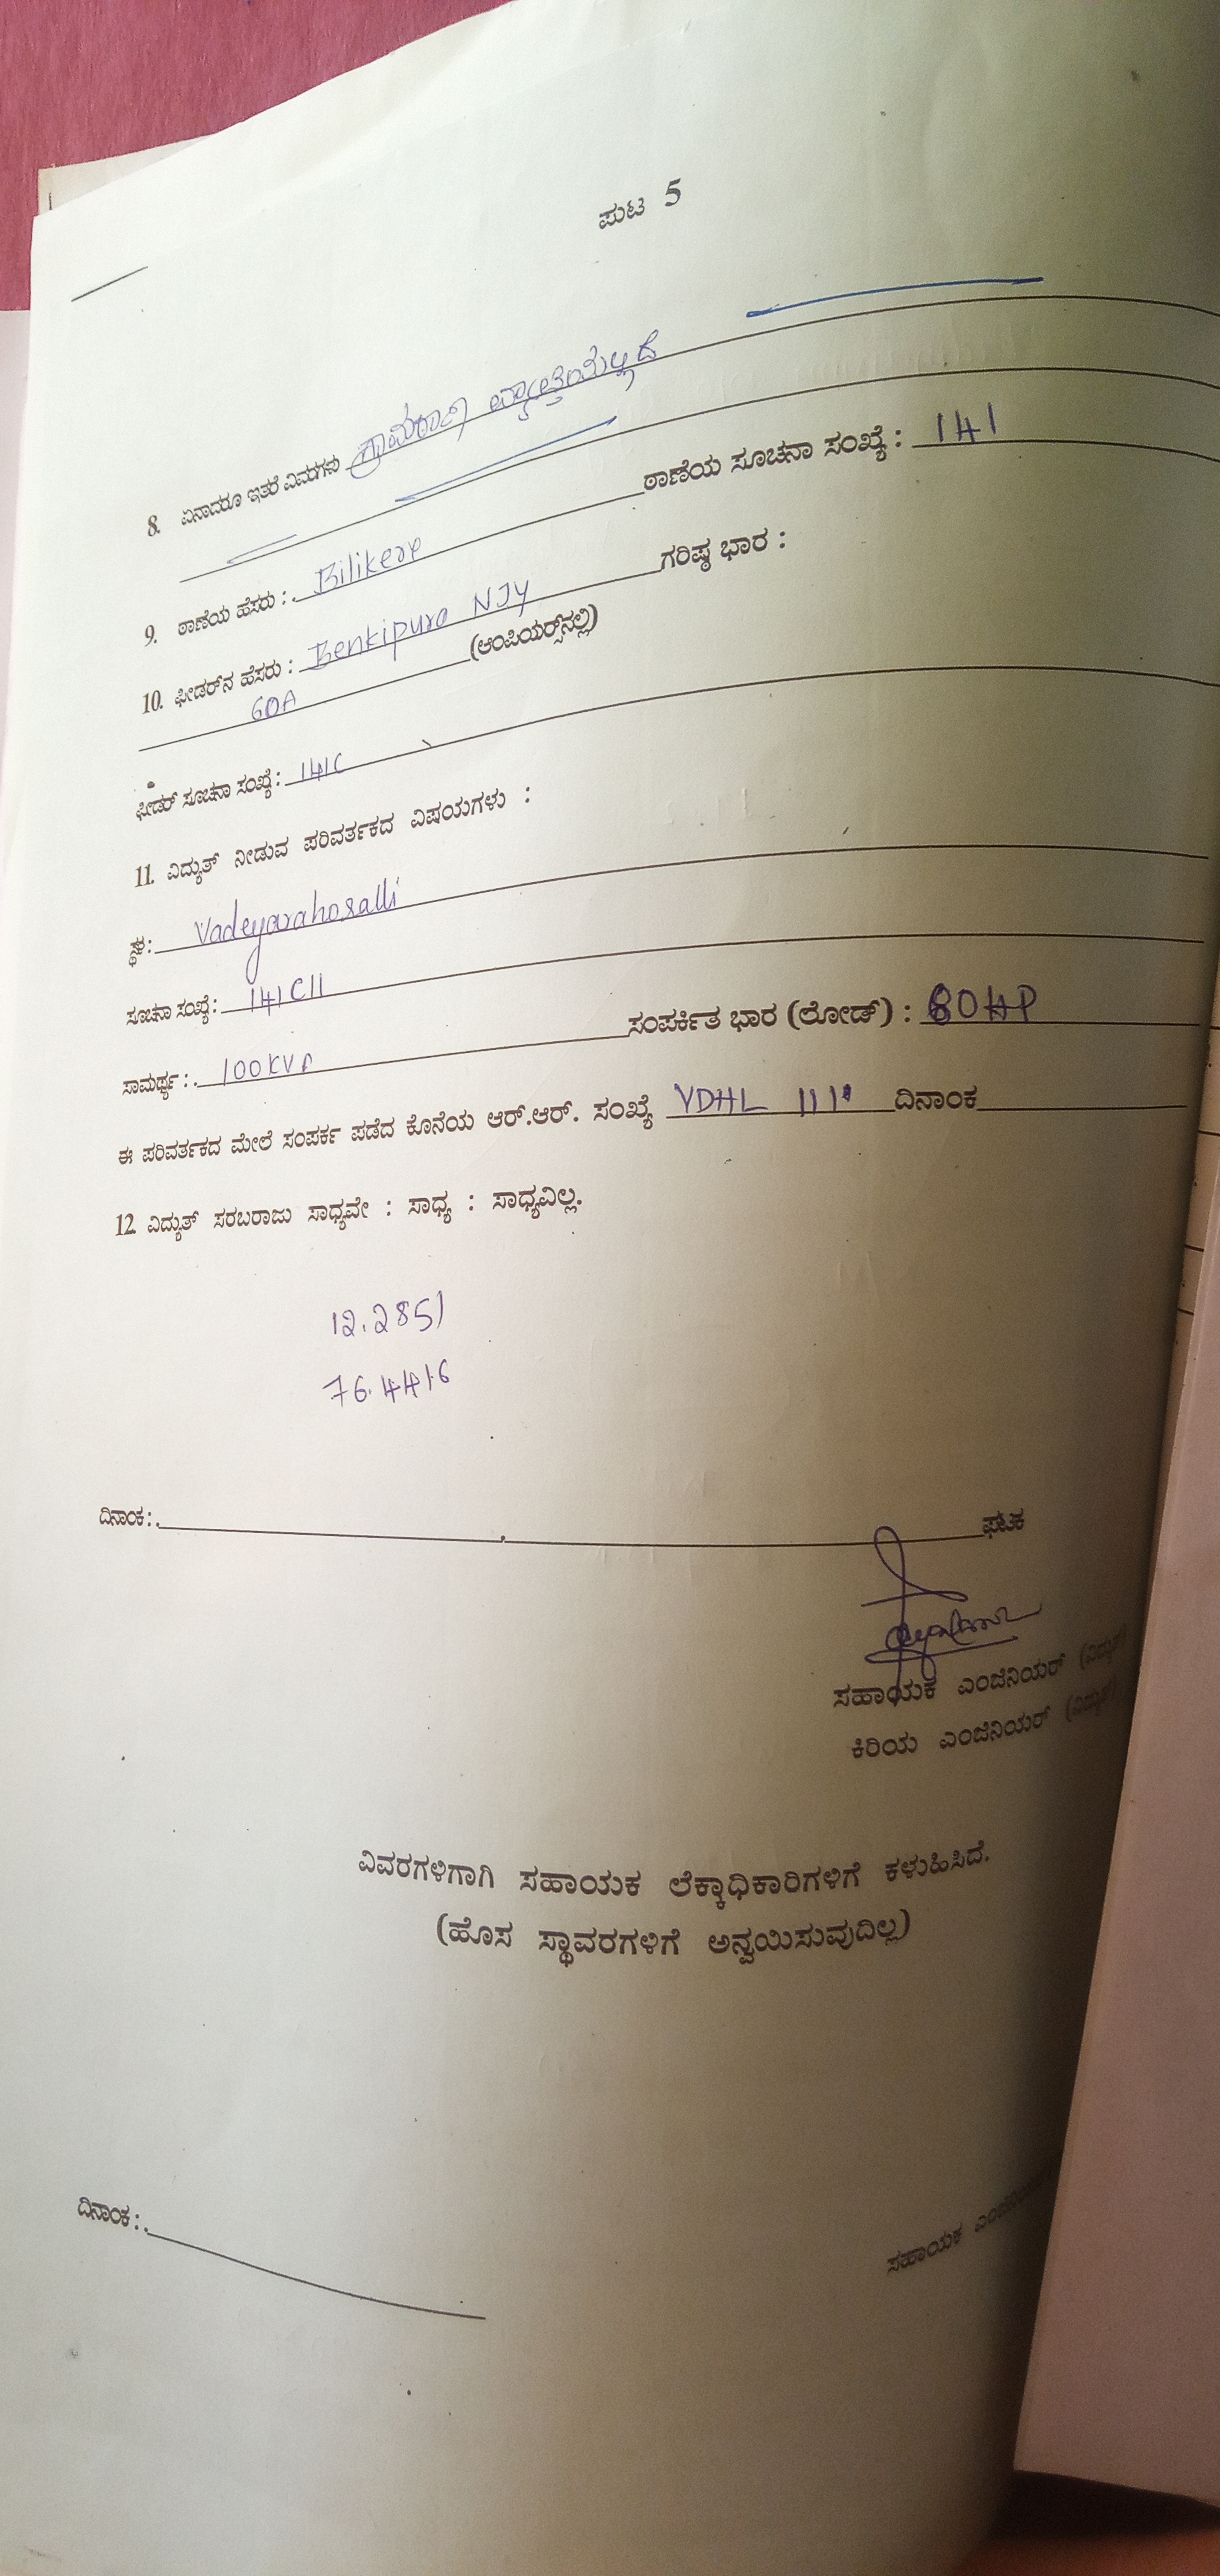 ಪುಟ 5
8. ಏನಾದರೂ ಇತರೆ ವಿವರಗಳು
9. ಠಾಣೆಯ ಹೆಸರು : Bilikere ಠಾಣೆಯ ಸೂಚನಾ ಸಂಖ್ಯೆ : 141
10. ಫೀಡರ್‌ನ ಹೆಸರು : Benkipura NJY ಗರಿಷ್ಠ ಭಾರ :
60A (ಆಂಪಿಯರ್ಸ್‌ನಲ್ಲಿ)
ಫೀಡರ್ ಸೂಚನಾ ಸಂಖ್ಯೆ : 141C
11. ವಿದ್ಯುತ್ ನೀಡುವ ಪರಿವರ್ತಕದ ವಿಷಯಗಳು :
ಸ್ಥಳ : Vadeyarahosalli
ಸೂಚನಾ ಸಂಖ್ಯೆ : 141C11
ಸಾಮರ್ಥ್ಯ : 100KVA ಸಂಪರ್ಕಿತ ಭಾರ (ಲೋಡ್) : 80HP
ಈ ಪರಿವರ್ತಕದ ಮೇಲೆ ಸಂಪರ್ಕ ಪಡೆದ ಕೊನೆಯ ಆರ್.ಆರ್. ಸಂಖ್ಯೆ VDHL ದಿನಾಂಕ
12. ವಿದ್ಯುತ್ ಸರಬರಾಜು ಸಾಧ್ಯವೇ : ಸಾಧ್ಯ : ಸಾಧ್ಯವಿಲ್ಲ.
12.2851
76.4416
ದಿನಾಂಕ : ಘಟಕ
ಸಹಾಯಕ ಎಂಜಿನಿಯರ್ (ವಿದ್ಯುತ್)
ಕಿರಿಯ ಎಂಜಿನಿಯರ್ (ವಿದ್ಯುತ್)
ವಿವರಗಳಿಗಾಗಿ ಸಹಾಯಕ ಲೆಕ್ಕಾಧಿಕಾರಿಗಳಿಗೆ ಕಳುಹಿಸಿದೆ.
(ಹೊಸ ಸ್ಥಾವರಗಳಿಗೆ ಅನ್ವಯಿಸುವುದಿಲ್ಲ)
ದಿನಾಂಕ :
ಸಹಾಯಕ